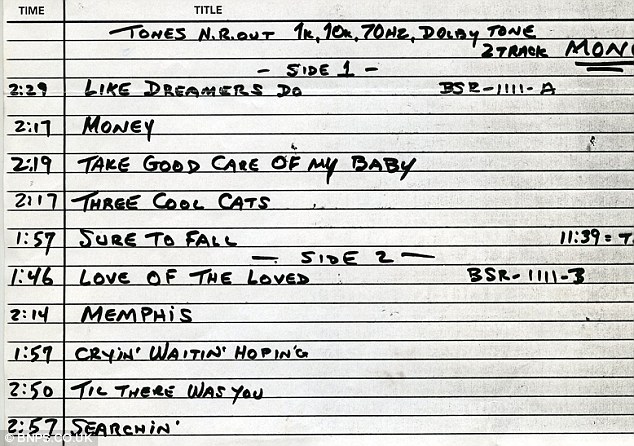 TIME TITLE
TONES N.R. OUT 1K, 10K, 70HZ, DOLBY TONE
2 TRACK MONO
- SIDE 1 -
2:29 LIKE DREAMERS DO BSR-1111-A
2:17 MONEY
2:19 TAKE GOOD CARE OF MY BABY
2:17 THREE COOL CATS
1:57 SURE TO FALL 11:39 = T
- SIDE 2 -
1:46 LOVE OF THE LOVED BSR-1111-B
2:14 MEMPHIS
1:57 CRYIN' WAITIN' HOPIN'G
2:50 TIL THERE WAS YOU
2:57 SEARCHIN'
© BNPS.CO.UK